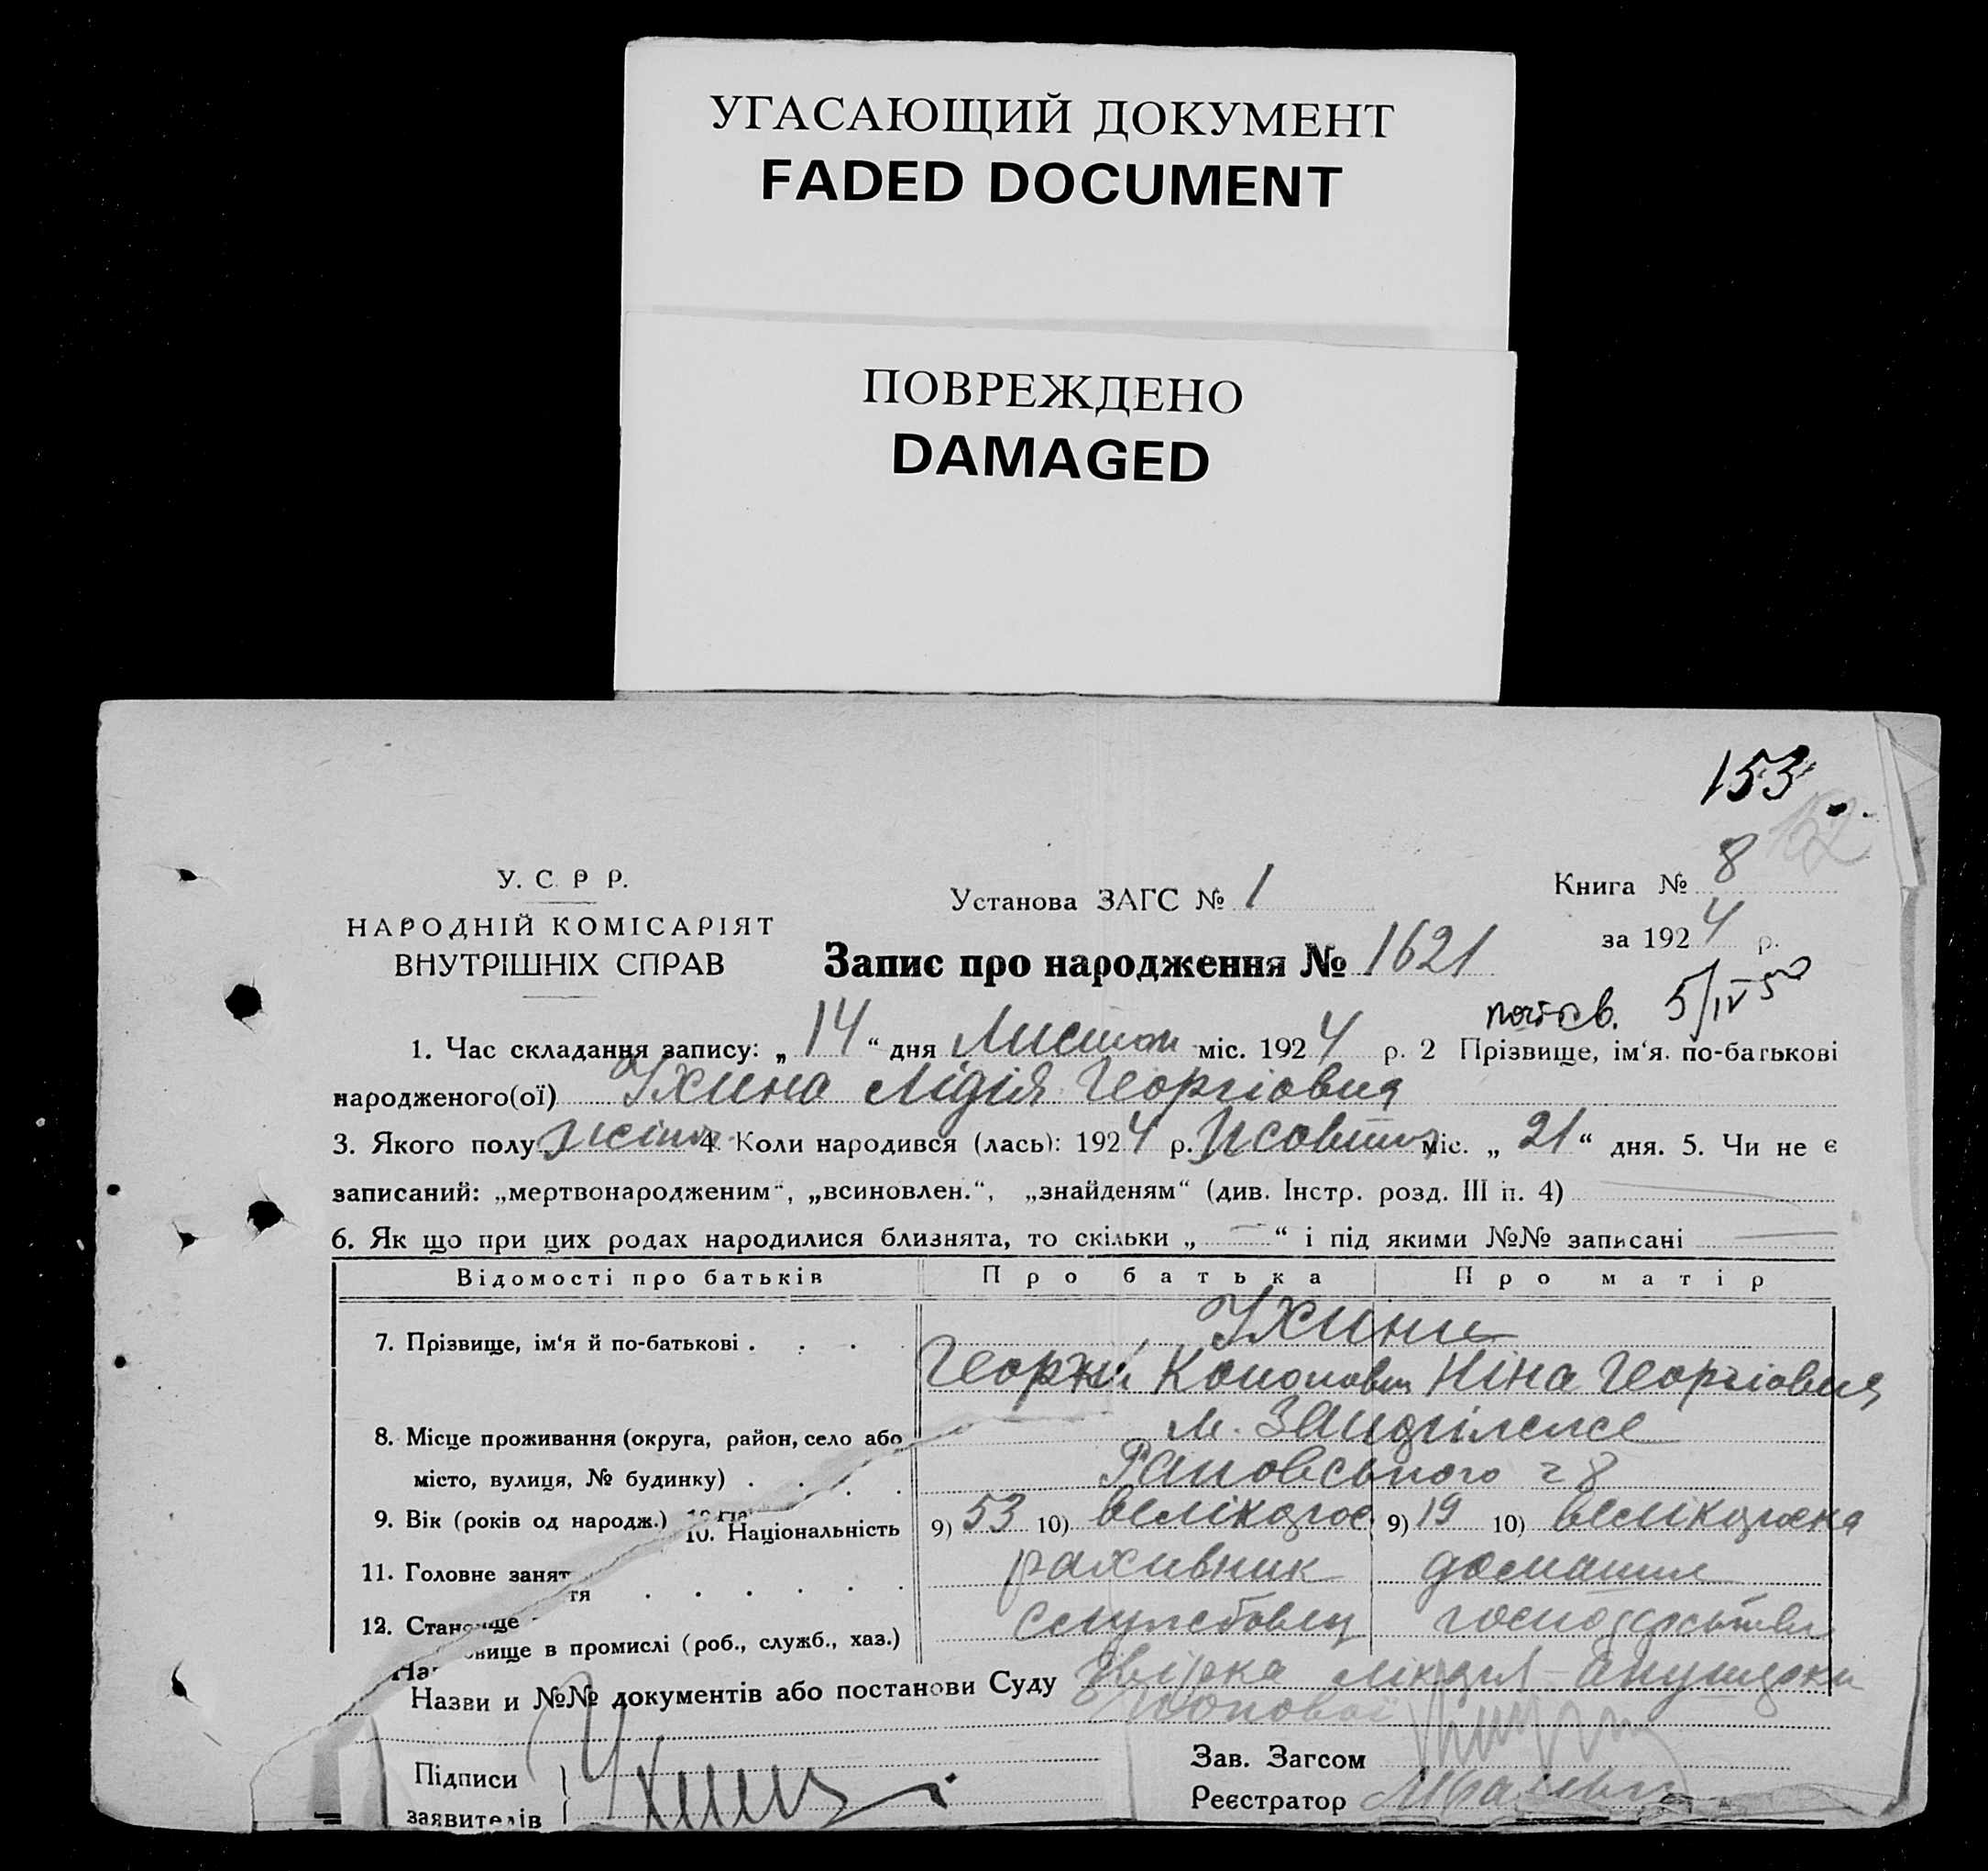 УГАСАЮЩИЙ ДОКУМЕНТ
FADED DOCUMENT
ПОВРЕЖДЕНО
DAMAGED
153
152
У. С. Р Р.
НАРОДНІЙ КОМІСАРІЯТ
ВНУТРІШНІХ СПРАВ
Установа ЗАГС № 1
Книга № 8
за 1924 р.
Запис про народження № 1621
5/IV 50
1. Час складання запису: „14“ дня Листоп міс. 1924 р. 2 Прізвище, ім‘я. по-батькові
народженого(ої) Ухина Лідія Георгіовна
3. Якого полу жіноч. 4. Коли народився (лась): 1924 р. Жовтня міс. „21“ дня. 5. Чи не є
записаний: „мертвонародженим“, „всиновлен.“, „знайденям“ (див. Інстр. розд. III п. 4)
6. Як що при цих родах народилися близнята, то скільки „—“ і під якими №№ записані —
Відомості про батьків Про батька Про матір
7. Прізвище, ім‘я й по-батькові . . . Ухини
Георгій Кононович Ніна Георгіовна
8. Місце проживання (округа, район, село або м.
місто, вулиця, № будинку) . . . . 8
9. Вік (років од народж.) 10. Національність 9) 53 10) великорос 9) 19 10) великороска
11. Головне заняття . . . . . . рахивник домашнє
12. Становище в промислі (роб., служб., хаз.) службовец господарство
Назви и №№ документів або постанови Суду
Підписи
заявителів
Зав. Загсом
Реєстратор